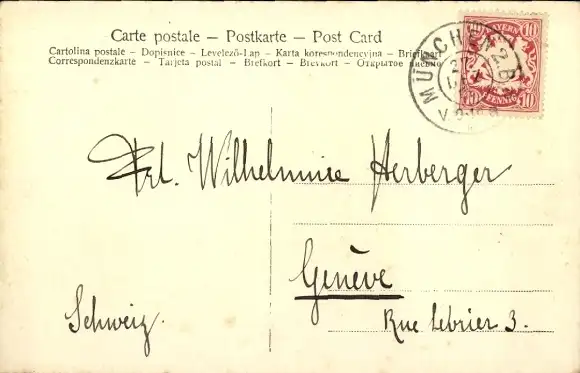 Carte postale – Postkarte – Post Card
Cartolina postale – Dopisnice – Levelező-Lap – Karta korespondencyjna – Briefkaart
Correspondenzkarte – Tarjeta postal – Brefkort – Brevkort – Открытое письмо
BAYERN
10 10
PFENNIG
10 10
MÜNCHEN
Frl. Wilhelmine Herberger
Genève
Schweiz.
Rue Lebrier 3.